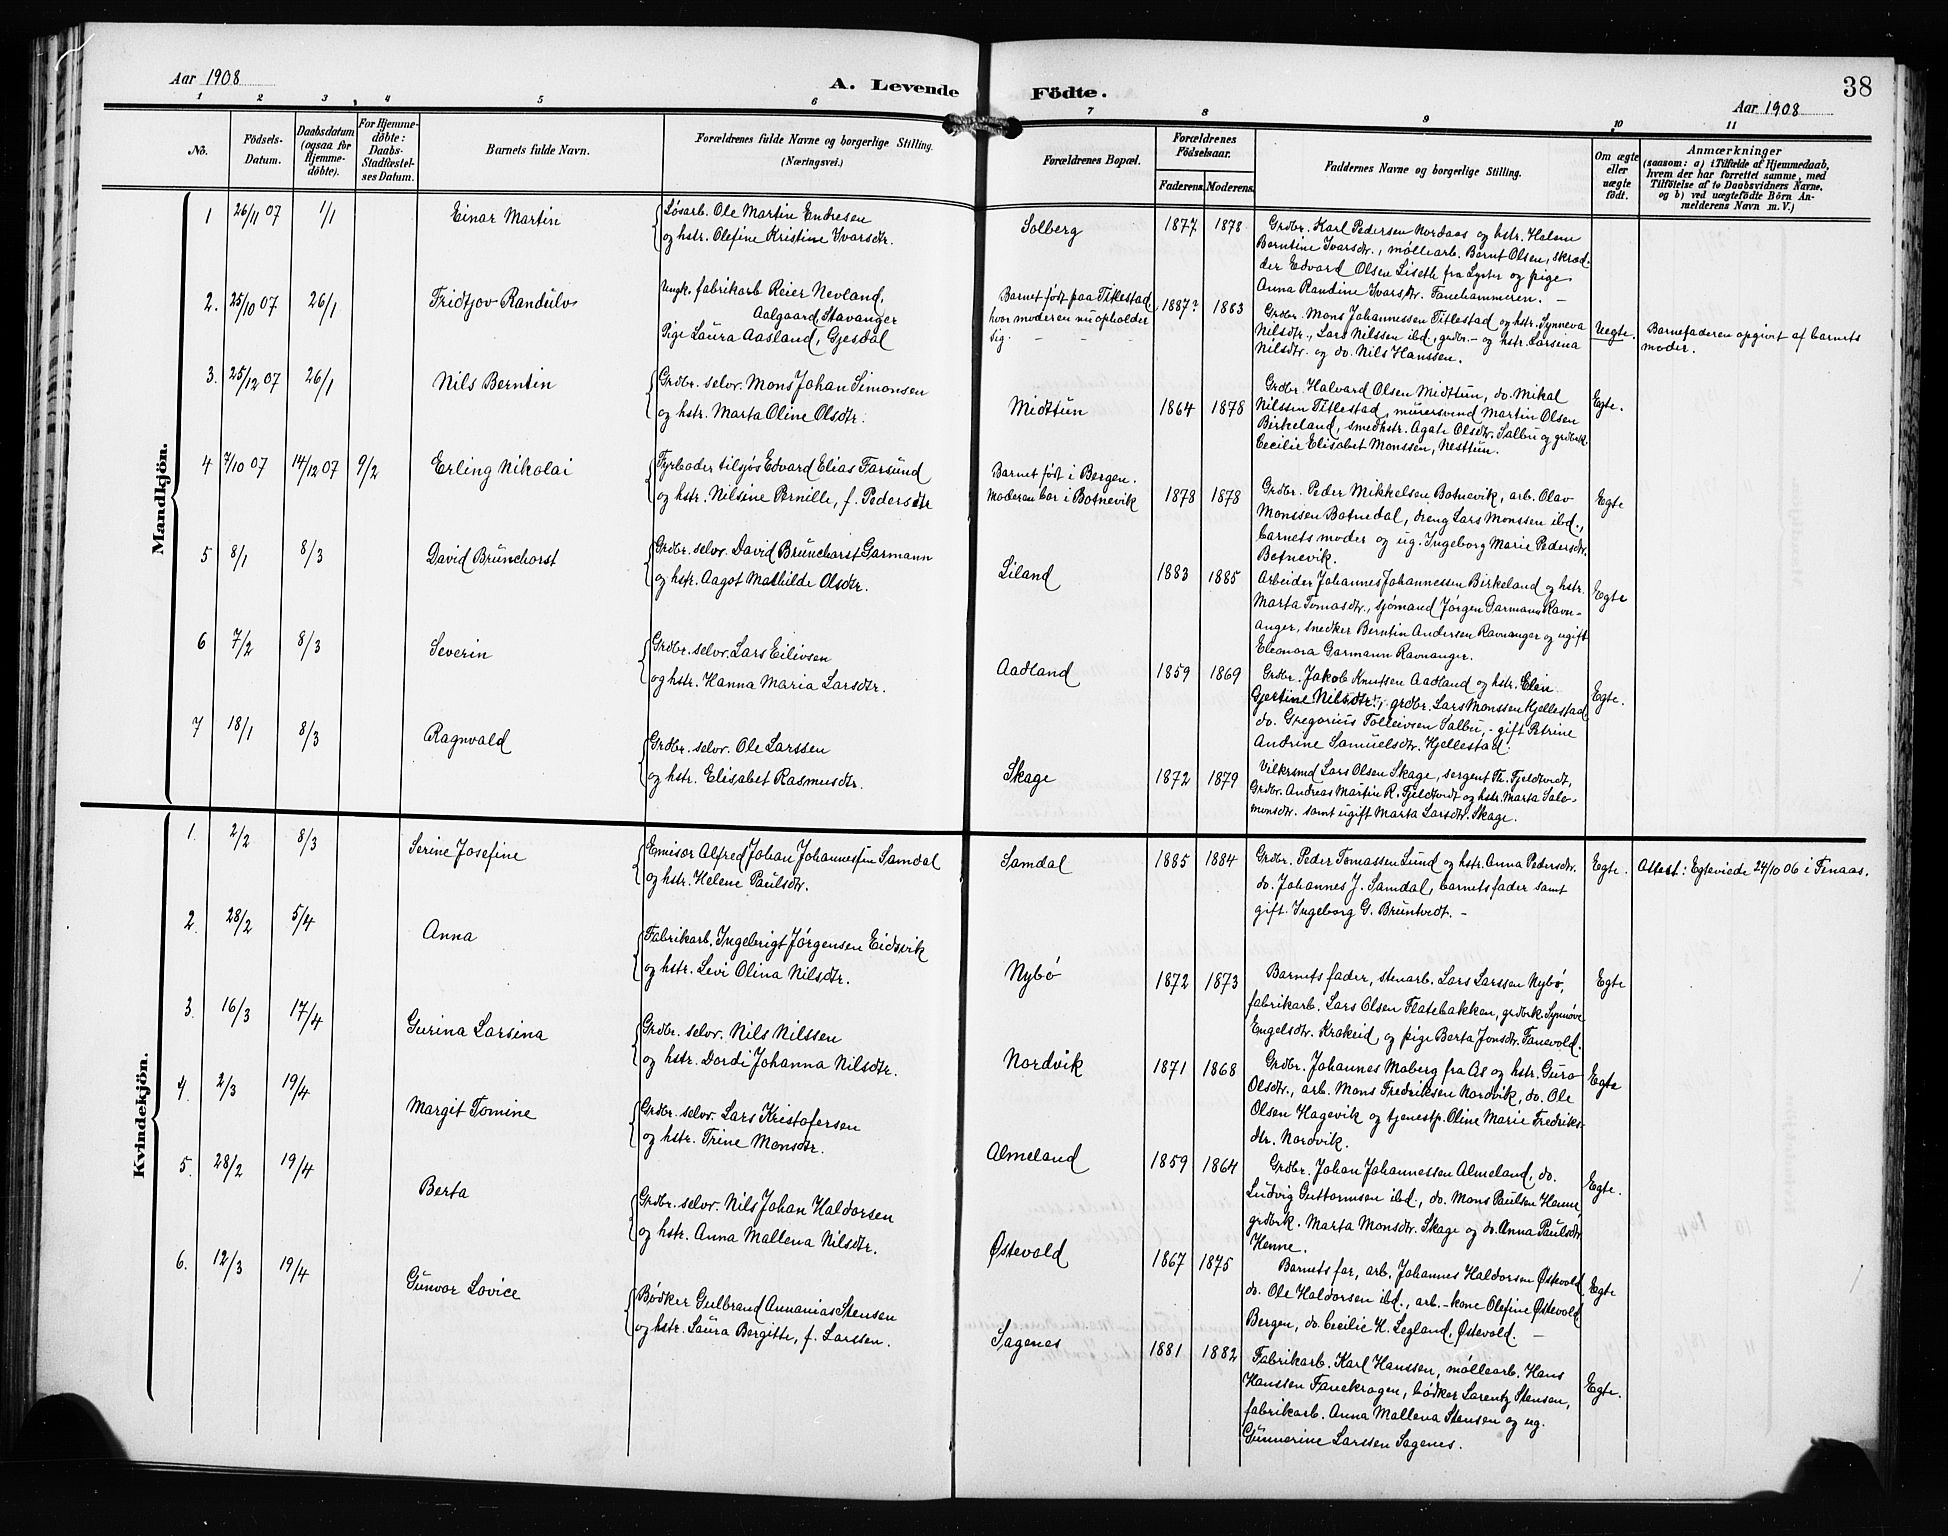 Aar 1908
A. Levende Födte.
38
Aar 1908
1 2 3 4 5 6 7 8 9 10 11
No.
Födsels-
Datum.
Daabsdatum
(ogsaa for
Hjemme-
döbte).
For Hjemme-
döbte:
Daabs-
Stadfæstel-
ses Datum.
Barnets fulde Navn.
Forældrenes fulde Navne og borgerlige Stilling.
(Næringsvei.)
Forældrenes Bopæl.
Forældrenes
Födselsaar.
Faderens. Moderens.
Faddernes Navne og borgerlige Stilling.
Om ægte
eller
uægte
födt.
Anmærkninger
(saasom: a) i Tilfælde af Hjemmedaab,
hvem der har forrettet samme, med
Tilföielse af to Daabsvidners Navne,
og b) ved uægtefödte Börn An-
melderens Navn m. V.)
Mandkjön.
1 26/11 07 1/1 Einar Martin
Løsarb. Ole Martin Endresen
og hstr. Olefine Kristine Ivarsdtr.
Solberg 1877 1878
Grdbr. Karl Pedersen Nordaas og hstr. Helene
Berntine Ivarsdtr., møllearb. Bernt Olsen, skræd-
der Edvard Olsen Liseth fra Lyster og pige
Anna Randine Ivarsdtr. Fanehammeren. —
2. 25/10 07 26/1 Fridtjov Randulv
Ungk. fabrikarb. Reier Nevland,
Aalgaard, Stavanger
Pige Laura Aasland, Gjesdal
Barnet født paa Titlestad,
hvor moderen nu opholder
sig. — — —
1887? 1883
Grdbr. Mons Johannessen Titlestad og hstr. Synneva
Nilsdtr., Lars Nilssen ibd., grdbr. — og hstr. Larsina
Nilsdtr. og do. Nils Hanssen.
Uegte.
Barnefaderen opgivet af barnets
moder.
3. 25/12 07 26/1 Nils Berntin
Grdbr. selv. Mons Johan Simonsen
og hstr. Marta Oline Olsdtr.
Midttun 1864 1878
Grdbr. Halvard Olsen Midttun, do. Mikal
Nilssen Titlestad, murersvend Martin Olsen
Birkeland, smedhstr. Agate Olsdtr. Salbu og grdbrk.
Cecilie Elisabet Monssen, Nesttun.
Egte.
4 7/10 07 14/12 07 9/2 Erling Nikolai
Fyrbøder tilsjøs Edvard Elias Farsund
og hstr. Nilsine Pernille, f. Pedersdtr
Barnet født i Bergen.
Moderen bor i Botnevik
1878 1878
Grdbr. Peder Mikkelsen Botnevik, arb. Olav
Monssen Botnedal, dreng Lars Monssen ibd.,
barnets moder og ug. Ingeborg Marie Pedersdtr.
Botnevik.
Egte
5 8/1 8/3 David Brunchorst
Grdbr. selv. David Brunchorst Garmann
og hstr. Aagot Mathilde Olsdtr.
Liland 1883 1885
Arbeider Johannes Johannessen Birkeland og hstr.
Marta Tomasdtr., sjømand Jørgen Garmann Ravn-
anger, snedker Berntin Andersen Ravnanger og ugift
Eleonora Garmann Ravnanger.
Egte
6 7/2 8/3 Severin
Grdbr. selv. Lars Eilivsen
og hstr. Hanna Maria Larsdtr.
Aadland 1859 1869
Grdbr. Jakob Knutsen Aadland og hstr. Elen
Gjertine Nilsdtr., grdbr. Lars Monssen Hjellestad
do. Gregorius Tolleivsen Salbu, - gift Petrine
Andrine Samuelsdtr. Hjellestad.
Egte.
7 18/1 8/3 Ragnvald
Grdbr. selv. Ole Larssen
og hstr. Elisabet Rasmusdtr.
Skage 1872 1879
Lars Olsen Skage, sergent Fjeldtvedt,
Grdbr. Andreas Martin R. Fjeldtvedt og hstr. Marta Salo-
monsdtr. samt ugift Marta Larsdtr. Skage.
Kvindekjön.
1. 2/2 8/3 Serine Josefine
Emisør Alfred Johan Johannessen Samdal
og hstr. Helene Paulsdtr.
Samdal 1885 1884
Grdbr. Peder Tomassen Lund og hstr. Anna Pedersdtr.
do. Johannes J. Samdal, barnets fader samt
gift. Ingeborg G. Bruntvedt. —
Egte.
Attest: Egteviede 24/10 06 i Finaas.
2. 28/2 5/4 Anna
Fabrikarb. Ingebrigt Jørgensen Eidsvik
og hstr. Levi Olina Nilsdtr.
Nybø 1872 1873
Barnets fader, stenarb. Lars Larssen Nybø,
fabrikarb. Lars Olsen Flatebakken, grdbrk. Synnøve
Engelsdtr. Krakeid og pige Berta Jonsdtr. Fanevold.
Egte
3. 16/3 17/4 Gurina Larsina
Grdbr. selv. Nils Nilssen
og hstr. Dordi Johanna Nilsdtr.
Nordvik 1871 1868
Grdbr. Johannes Moberg fra Os og hstr. Guro
Olsdtr., arb. Mons Fredriksen Nordvik, do. Ole
Olsen Hagevik og tjenestp. Oline Marie Fredriks-
dtr. Nordvik.
Egte
4. 2/3 19/4 Margit Tomine
Grdbr. selv. Lars Kristofersen
og hstr. Trine Monsdtr.
Almeland 1859 1864
Grdbr. Johan Johannessen Almeland, do.
Ludvig Guttormsen ibd., do. Mons Paulsen Henne,
grdbrk. Marta Monsdtr. Skage og do. Anna Paulsdtr
Henne.
Egte.
5. 28/2 19/4 Berta
Grdbr. selv. Nils Johan Haldorsen
og hstr. Anna Mallena Nilsdtr.
Østevold 1867 1875
Barnets far, arb. Johannes Haldorsen Østevold
do. Ole Haldorsen ibd., arb.-kone Olefine Østevold,
Bergen, do. Cecilie H. Legland, Østevold. —
Egte
6. 12/3 19/4 Gunvor Lovice
Bødker Gulbrand Annanias Stensen
og hstr. Laura Bergitte, f. Larssen.
Sagenes 1881 1882
Fabrikarb. Karl Hanssen, møllearb. Hans
Hanssen Fanekrogen, bødker Lorentz Stensen,
fabrikarb. Anna Mallena Stensen og ug.
Gunnerine Larssen Sagenes.
Egte.